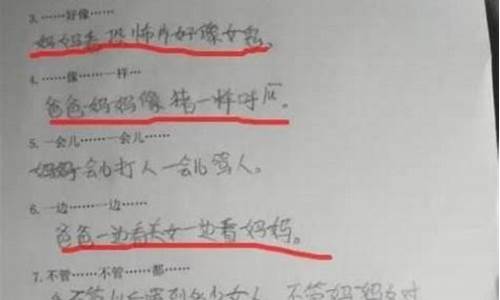 3.……好像……
妈妈看恐怖片好像女鬼。
4.……像……一样…
爸爸妈妈像猪一样呼瓜。
5.一会儿……一会儿……
妈妈会儿打人一会儿骂人。
6.一边……一边……
爸爸一边看美女一边看妈妈。
7.不管……不管……都……